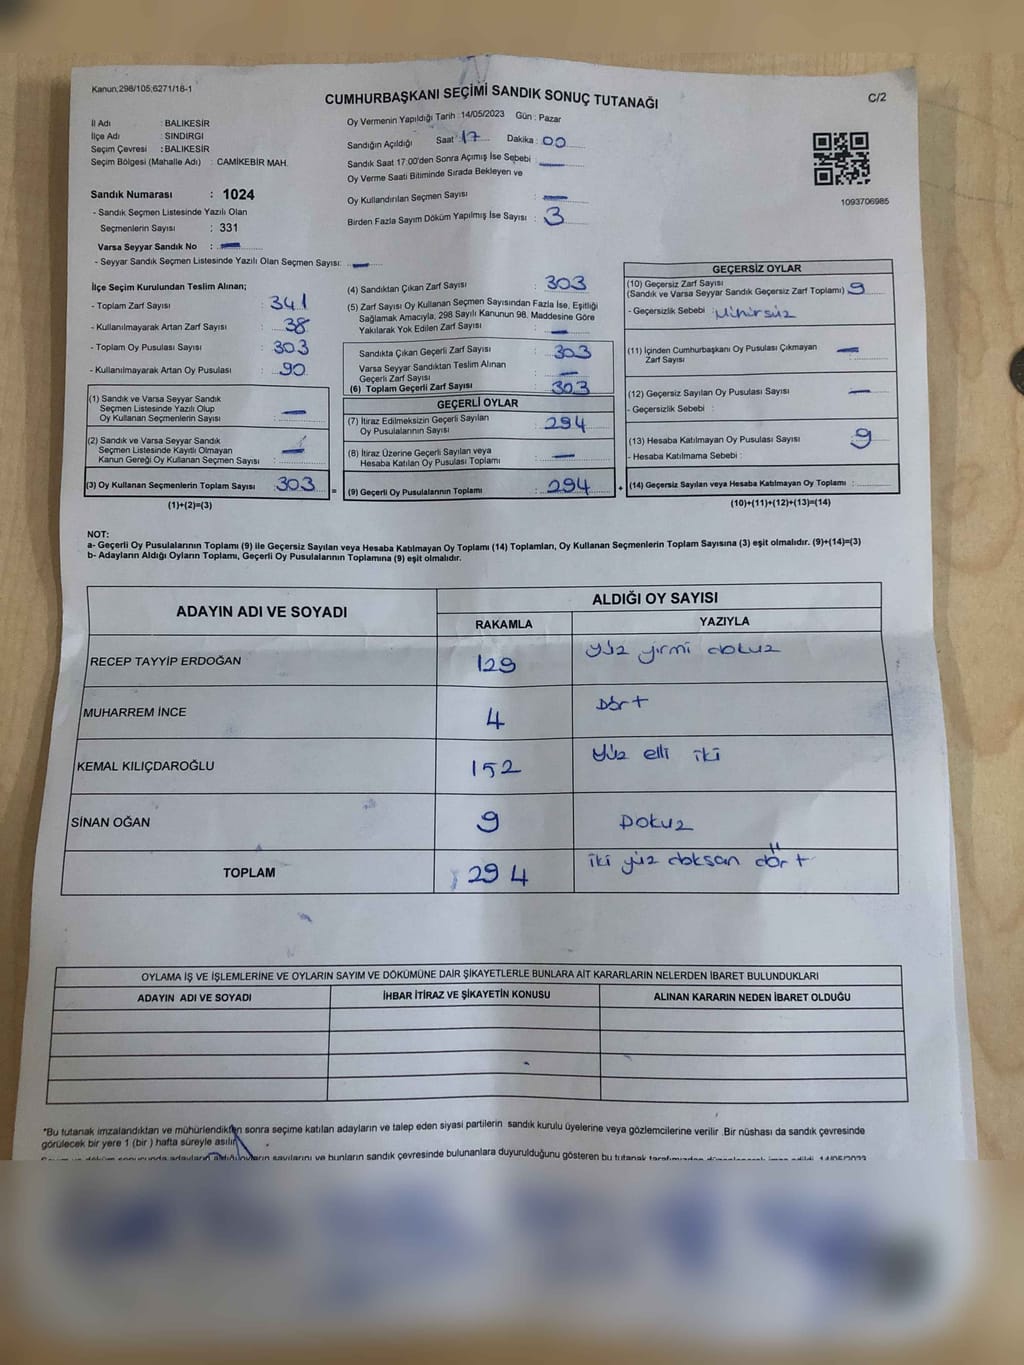 Kanun,298/105;6271/18-1
CUMHURBAŞKANI SEÇİMİ SANDIK SONUÇ TUTANAĞI
C/2
İl Adı : BALIKESİR
İlçe Adı : SINDIRGI
Seçim Çevresi : BALIKESİR
Seçim Bölgesi (Mahalle Adı) : CAMİKEBİR MAH.
Sandık Numarası : 1024
- Sandık Seçmen Listesinde Yazılı Olan
Seçmenlerin Sayısı : 331
Varsa Seyyar Sandık No : —
- Seyyar Sandık Seçmen Listesinde Yazılı Olan Seçmen Sayısı: —
Oy Vermenin Yapıldığı Tarih : 14/05/2023 Gün : Pazar
Sandığın Açıldığı Saat : 17 Dakika : 00
Sandık Saat 17.00'den Sonra Açımış İse Sebebi : —
Oy Verme Saati Bitiminde Sırada Bekleyen ve
Oy Kullandırılan Seçmen Sayısı : —
Birden Fazla Sayım Döküm Yapılmış İse Sayısı : 3
1093706985
İlçe Seçim Kurulundan Teslim Alınan;
- Toplam Zarf Sayısı : 341
- Kullanılmayarak Artan Zarf Sayısı : 38
- Toplam Oy Pusulası Sayısı : 303
- Kullanılmayarak Artan Oy Pusulası : 90
(1) Sandık ve Varsa Seyyar Sandık
Seçmen Listesinde Yazılı Olup
Oy Kullanan Seçmenlerin Sayısı : —
(2) Sandık ve Varsa Seyyar Sandık
Seçmen Listesinde Kayıtlı Olmayan
Kanun Gereği Oy Kullanan Seçmen Sayısı : —
(3) Oy Kullanan Seçmenlerin Toplam Sayısı : 303
(1)+(2)=(3)
(4) Sandıktan Çıkan Zarf Sayısı : 303
(5) Zarf Sayısı Oy Kullanan Seçmen Sayısından Fazla İse, Eşitliği
Sağlamak Amacıyla, 298 Sayılı Kanunun 98. Maddesine Göre
Yakılarak Yok Edilen Zarf Sayısı : —
Sandıkta Çıkan Geçerli Zarf Sayısı : 303
Varsa Seyyar Sandıktan Teslim Alınan
Geçerli Zarf Sayısı : —
(6) Toplam Geçerli Zarf Sayısı : 303
GEÇERLİ OYLAR
(7) İtiraz Edilmeksizin Geçerli Sayılan
Oy Pusulalarının Sayısı : 294
(8) İtiraz Üzerine Geçerli Sayılan veya
Hesaba Katılan Oy Pusulası Toplamı : —
= (9) Geçerli Oy Pusulalarının Toplamı : 294 +
GEÇERSİZ OYLAR
(10) Geçersiz Zarf Sayısı
(Sandık ve Varsa Seyyar Sandık Geçersiz Zarf Toplamı) : 9
- Geçersizlik Sebebi : Mühürsüz
(11) İçinden Cumhurbaşkanı Oy Pusulası Çıkmayan
Zarf Sayısı : —
(12) Geçersiz Sayılan Oy Pusulası Sayısı : —
- Geçersizlik Sebebi :
(13) Hesaba Katılmayan Oy Pusulası Sayısı : 9
- Hesaba Katılmama Sebebi :
(14) Geçersiz Sayılan veya Hesaba Katılmayan Oy Toplamı :
(10)+(11)+(12)+(13)=(14)
NOT:
a- Geçerli Oy Pusulalarının Toplamı (9) ile Geçersiz Sayılan veya Hesaba Katılmayan Oy Toplamı (14) Toplamları, Oy Kullanan Seçmenlerin Toplam Sayısına (3) eşit olmalıdır. (9)+(14)=(3)
b- Adayların Aldığı Oyların Toplamı, Geçerli Oy Pusulalarının Toplamına (9) eşit olmalıdır.
ADAYIN ADI VE SOYADI
ALDIĞI OY SAYISI
RAKAMLA YAZIYLA
RECEP TAYYİP ERDOĞAN 129 yüz yirmi dokuz
MUHARREM İNCE 4 Dört
KEMAL KILIÇDAROĞLU 152 yüz elli iki
SİNAN OĞAN 9 Dokuz
TOPLAM 294 iki yüz doksan dört
OYLAMA İŞ VE İŞLEMLERİNE VE OYLARIN SAYIM VE DÖKÜMÜNE DAİR ŞİKAYETLERLE BUNLARA AİT KARARLARIN NELERDEN İBARET BULUNDUKLARI
ADAYIN ADI VE SOYADI İHBAR İTİRAZ VE ŞİKAYETİN KONUSU ALINAN KARARIN NEDEN İBARET OLDUĞU
*Bu tutanak imzalandıktan ve mühürlendikten sonra seçime katılan adayların ve talep eden siyasi partilerin sandık kurulu üyelerine veya gözlemcilerine verilir .Bir nüshası da sandık çevresinde
görülecek bir yere 1 (bir ) hafta süreyle asılır.
adayların aldığı oyların sayılarını ve bunların sandık çevresinde bulunanlara duyurulduğunu gösteren bu tutanak